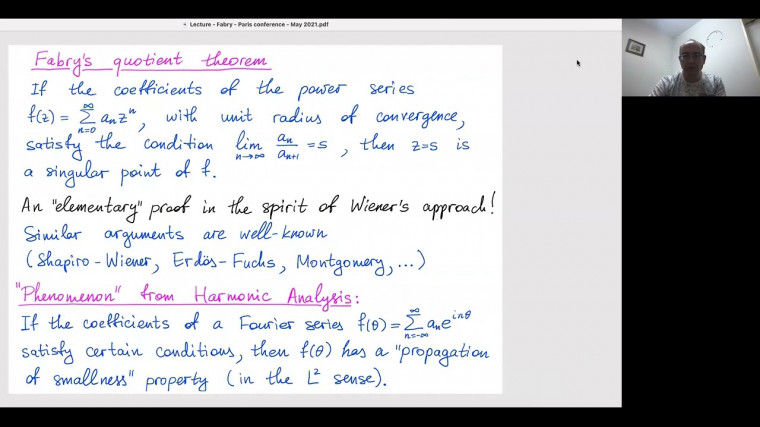 Lecture - Fabry - Paris conference - May 2021.pdf
Fabry's quotient theorem
If the coefficients of the power series
f(z) = ∑_{n=0}^{∞} a_n z^n, with unit radius of convergence,
satisfy the condition lim_{n→∞} a_n/a_{n+1} = s, then z=s is
a singular point of f.
An "elementary" proof in the spirit of Wiener's approach!
Similar arguments are well-known
(Shapiro-Wiener, Erdös-Fuchs, Montgomery, ...)
"Phenomenon" from Harmonic Analysis:
If the coefficients of a Fourier series f(θ) = ∑_{n=-∞}^{∞} a_n e^{inθ}
satisfy certain conditions, then f(θ) has a "propagation
of smallness" property (in the L² sense).